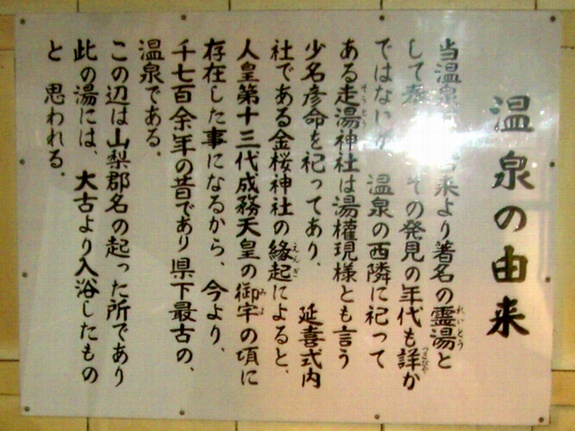 温泉の由来
当温泉 来より著名の霊湯と
して その発見の年代も詳か
ではないが 温泉の西隣に祀って
ある走湯神社は湯権現様とも言う
少名彦命を祀ってあり、 延喜式内
社である金桜神社の縁起によると、
人皇第十三代成務天皇の御宇の頃に
存在した事になるから、今より、
千七百余年の昔であり県下最古の、
温泉である。
この辺は山梨郡名の起った所であり
此の湯には、大古より入浴したもの
と 思われる。